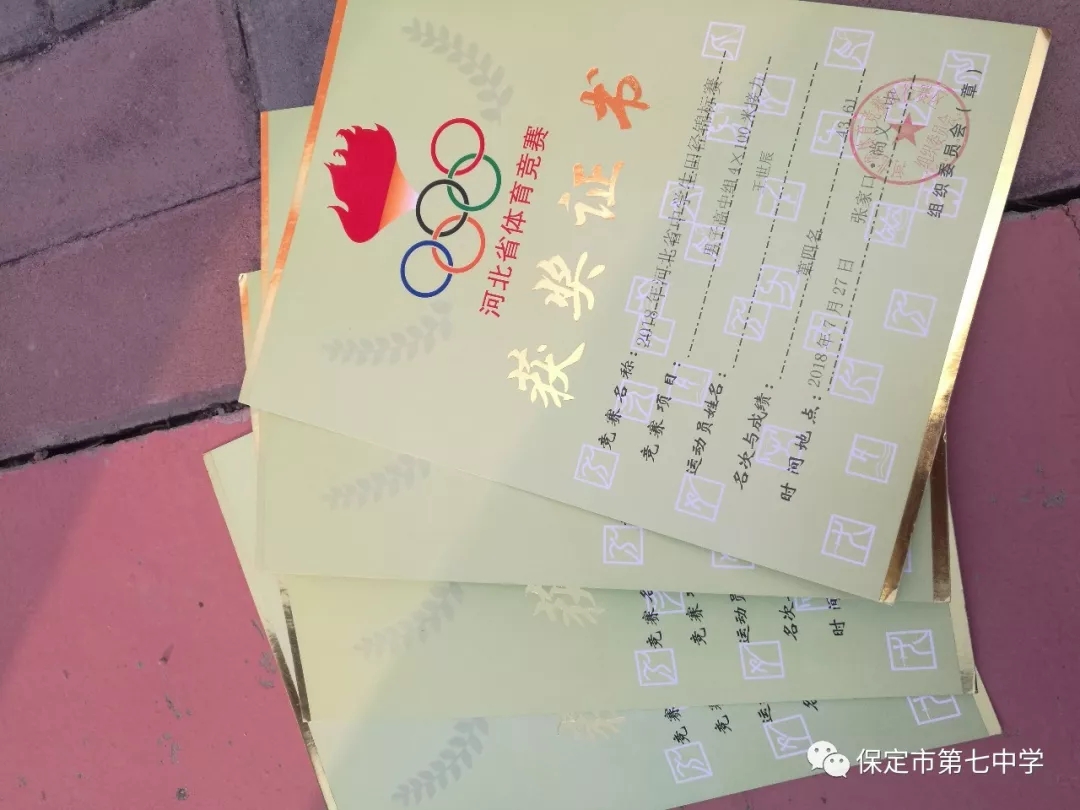 河北省体育竞赛
获奖证书
竞赛名称：2018年河北省中学生田径锦标赛
竞赛项目：男子高中组4×100米接力
运动员姓名：于世辰
名次与成绩：第四名 43.61
时间地点：2018年7月27日 张家口·尚义
组织委员会（章）
获
竞赛名
竞赛
运动员
名次
时间
竞赛
竞
运
名
保定市第七中学